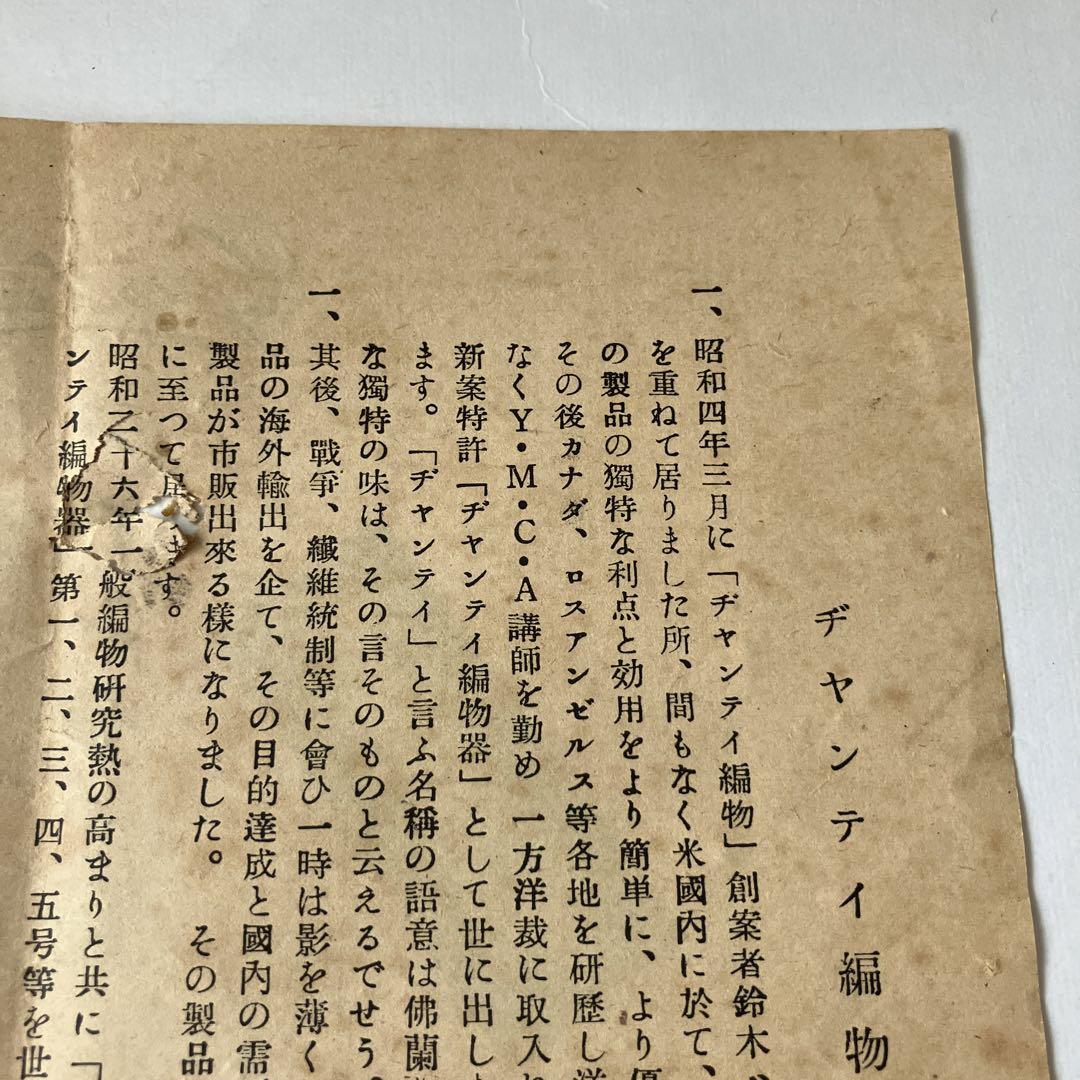 ヂヤンテイ編物
一、昭和四年三月に「ヂヤンテイ編物」創案者鈴木
を重ねて居りました所、間もなく米國内に於て、
の製品の獨特な利点と効用をより簡単に、より
その後カナダ、ロスアンゼルス等各地を研歴し
なくY・M・C・A講師を勤め 一方洋裁に取入
新案特許「ヂャンテイ編物器」として世に出し
ます。「ヂャンテイ」と言ふ名稱の語意は佛蘭
な獨特の味は、その言そのものと云えるでせう。
一、其後、戰爭、纖維統制等に會ひ一時は影を薄く
品の海外輸出を企て、その目的達成と國内の需
製品が市販出來る様になりました。 その製品
に至つて居 ます。
昭和二十六年一般編物研究熱の高まりと共に「
ンテイ編物器」第一、二、三、四、五号等を世